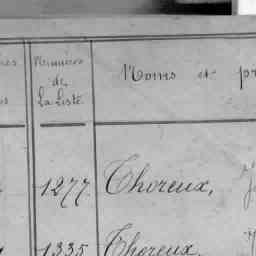 Numéros de La Liste
Noms et
1277 Thoreux,
1335 Thoreux